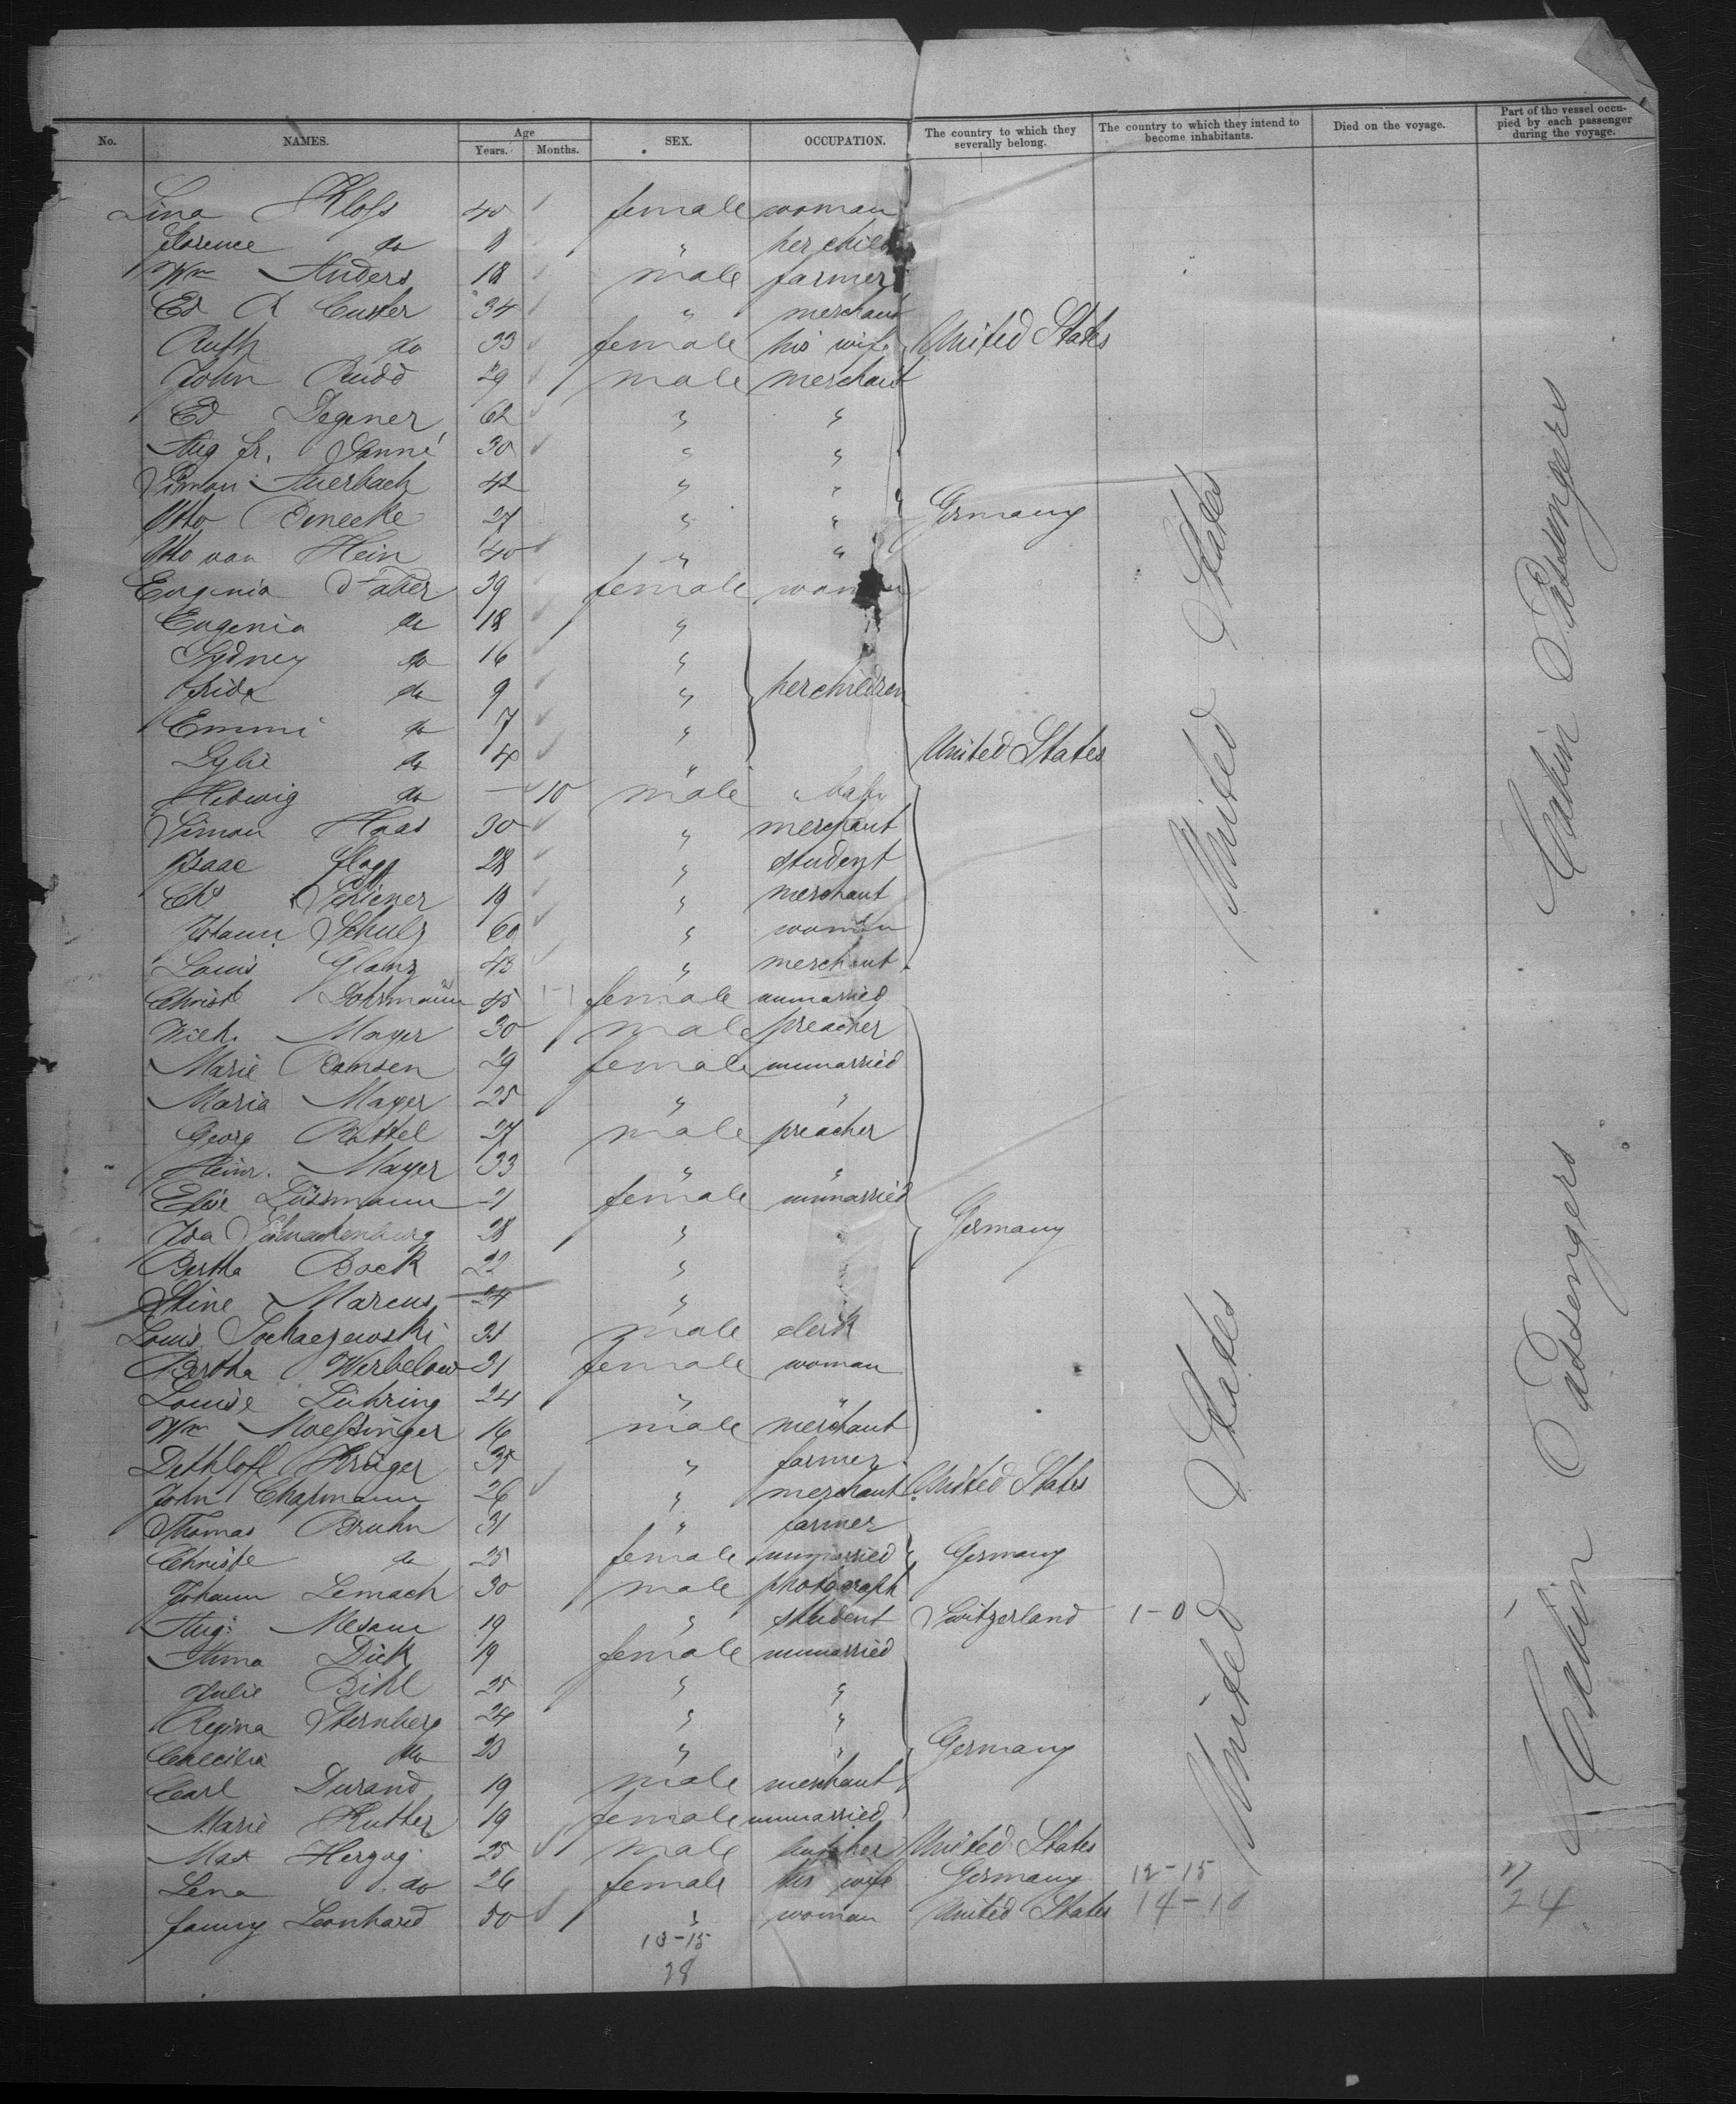 No. NAMES. Age Years. Months. SEX. OCCUPATION. The country to which they severally belong. The country to which they intend to become inhabitants. Died on the voyage. Part of the vessel occupied by each passenger during the voyage.
Lina Kloſs 40 female woman
Florence do 8 " her child
Wm Anders 18 male farmer
Ed R Custer 34 " merchant
Ruth do 33 female his wife United States
John Rudd 29 male merchant
Ed Degener 62 " "
Aug Fr. Sanné 30 " "
Simon Auerbach 42 " "
Otto Benecke 27 " " Germany
Otto von Hein 40 " "
Eugenia Faber 39 female woman
Eugenia do 18 "
Sydney do 16 "
Frida do 9 " her children
Emmi do 7 "
do 4 " United States
Hedwig do — 10 male
Simon Haas 30 " merchant
Isaac Flagg 28 " student
19 " merchant
Johann Schulz 60 " woman
Louis Glanz 43 " merchant
Christe Dohrmann 45 female unmarried
Wilh. Mayer 30 male preacher
Marie Bomsen 29 female unmarried
Maria Mayer 25 " "
Georg 27 male preacher
Heinr. Mayer 33 " "
Elise Lüssmann 21 female unmarried
Ida 28 " " Germany
Bertha Bock 22 "
Stine Marcus 24 "
Louis 21 male clerk
Bertha Werbelow 21 female woman
Louise Lühring 24 " "
Wm Moeſsinger 16 male merchant
Dethloff Krüger 35 " farmer
John Chapmann 26 " merchant United States
Thomas Bruhn 31 " farmer
Christe do 25 female unmarried Germany
Johann Lemach 30 male photograph
Aug: 19 " student Switzerland 1-0 1
Anna Dick 19 female unmarried
Julie Bihl 25 " "
Regina Sternberg 24 " "
Caecilia do 23 " " Germany
Carl Durand 19 male merchant
Marie Kutter 19 female unmarried
Max Herzog 25 male butcher United States
Lena do 26 female his wife Germany 12-15
Fanny Leonhard 50 " woman United States 14-10 24
13-15
28
United States
United States
Cabin Passengers
Cabin Passengers